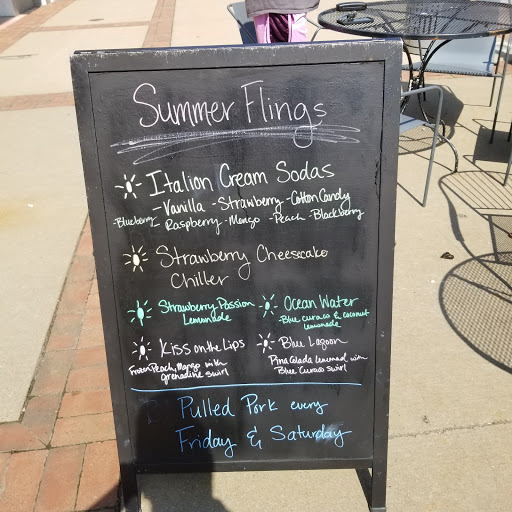 Summer Flings
Italion Cream Sodas
-Vanilla -Strawberry -Cotton Candy
-Blueberry- Raspberry -Mango -Peach -Blackberry
Strawberry Cheesecake
Chiller
Strawberry Passion
Lemonade
Ocean Water
-Blue curaco & coconut
lemonade
Kiss on the Lips
Frozen Peach, Mango with
grenadine swirl
Blue Lagoon
Pina Colada lemonad with
Blue Curaco swirl
Pulled Pork every
Friday & Saturday